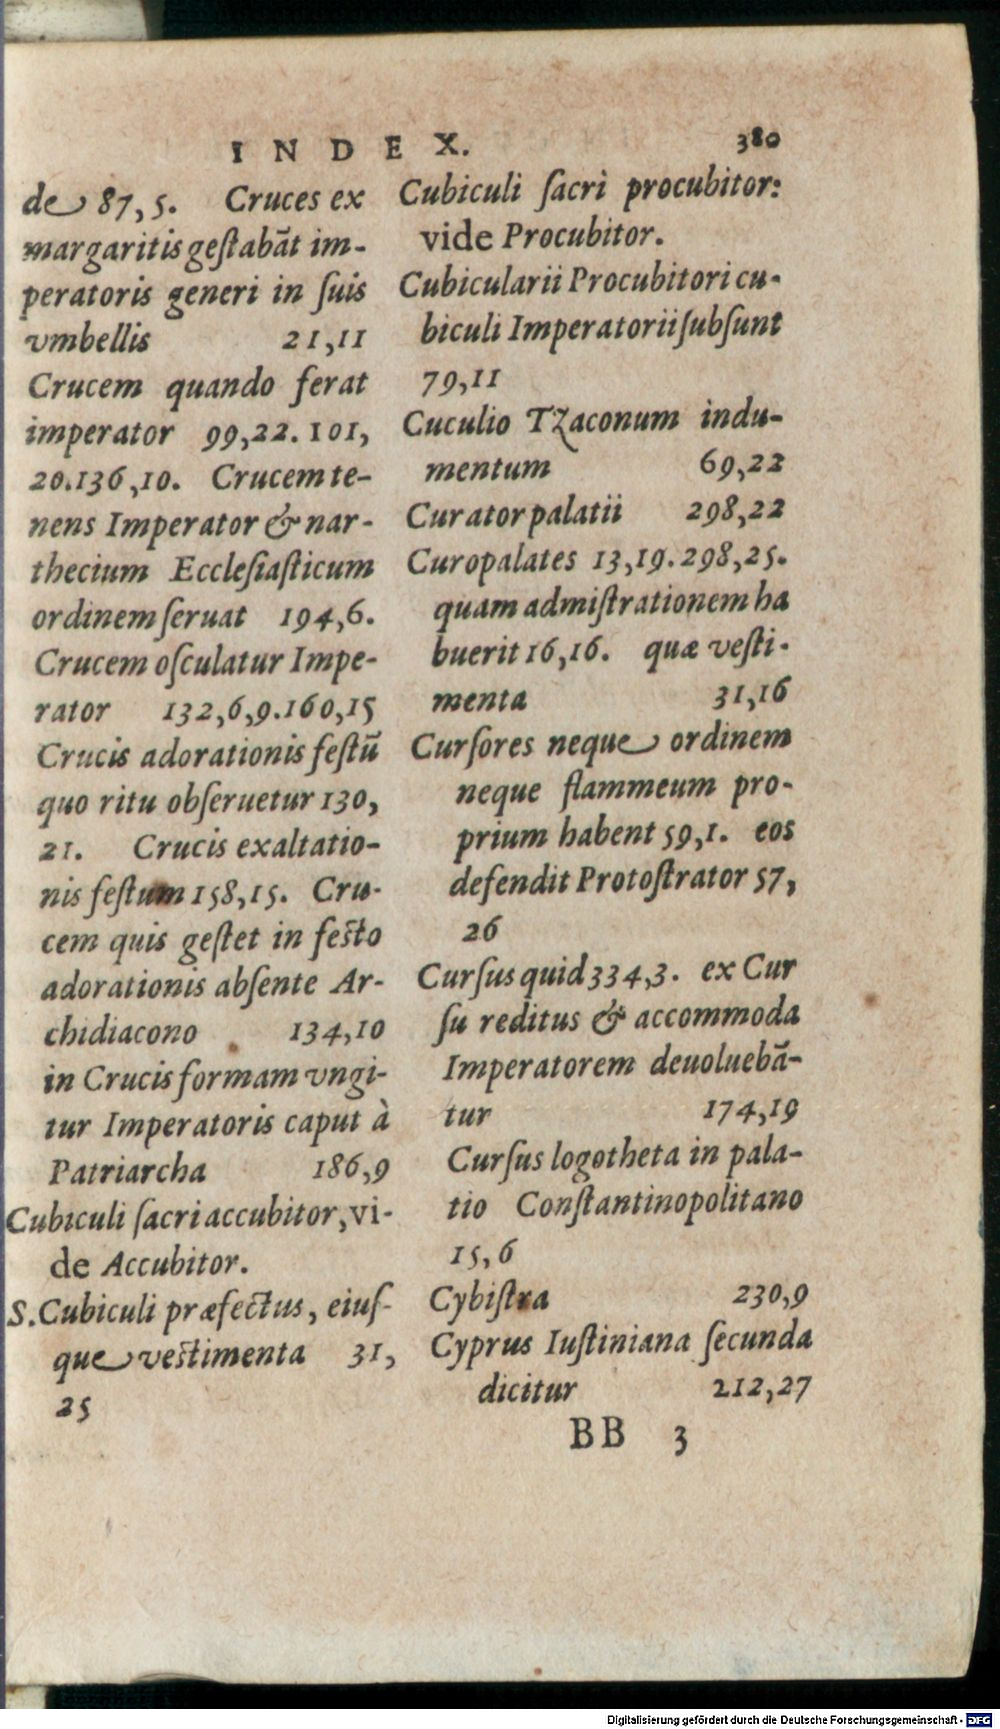 INDEX. 380
de 87,5. Cruces ex
margaritis geſtabāt im-
peratoris generi in ſuis
vmbellis 21,11
Crucem quando ferat
imperator 99,22. 101,
20.136,10. Crucem te-
nens Imperator & nar-
thecium Eccleſiaſticum
ordinem ſeruat 194,6.
Crucem oſculatur Impe-
rator 132,6,9.160,15
Crucis adorationis feſtū
quo ritu obſeruetur 130,
21. Crucis exaltatio-
nis feſtum 158,15. Cru-
cem quis geſtet in feſto
adorationis abſente Ar-
chidiacono 134,10
in Crucis formam vngi-
tur Imperatoris caput à
Patriarcha 186,9
Cubiculi ſacri accubitor, vi-
de Accubitor.
S. Cubiculi præfectus, eiuſ-
que veſtimenta 31,
25
Cubiculi ſacri procubitor:
vide Procubitor.
Cubicularii Procubitori cu-
biculi Imperatorii ſubſunt
79,11
Cuculio Tzaconum indu-
mentum 69,22
Curator palatii 298,22
Curopalates 13,19.298,25.
quam admiſtrationem ha
buerit 16,16. quæ veſti-
menta 31,16
Curſores neque ordinem
neque flammeum pro-
prium habent 59,1. eos
defendit Protoſtrator 57,
26
Curſus quid 334,3. ex Cur
ſu reditus & accommoda
Imperatorem deuoluebā-
tur 174,19
Curſus logotheta in pala-
tio Conſtantinopolitano
15,6
Cybiſtra 230,9
Cyprus Iuſtiniana ſecunda
dicitur 212,27
BB 3
Digitalisierung gefördert durch die Deutsche Forschungsgemeinschaft - DFG